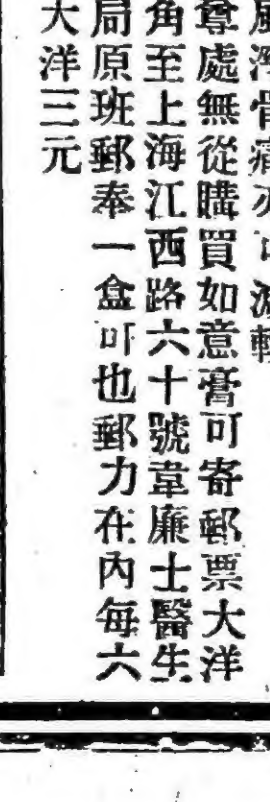 風濕骨痛亦可減輕
尊處無從購買如意膏可寄郵票大洋
角至上海江西路六十號韋廉士醫生
局原班郵奉一盒可也郵力在內每六
大洋三元